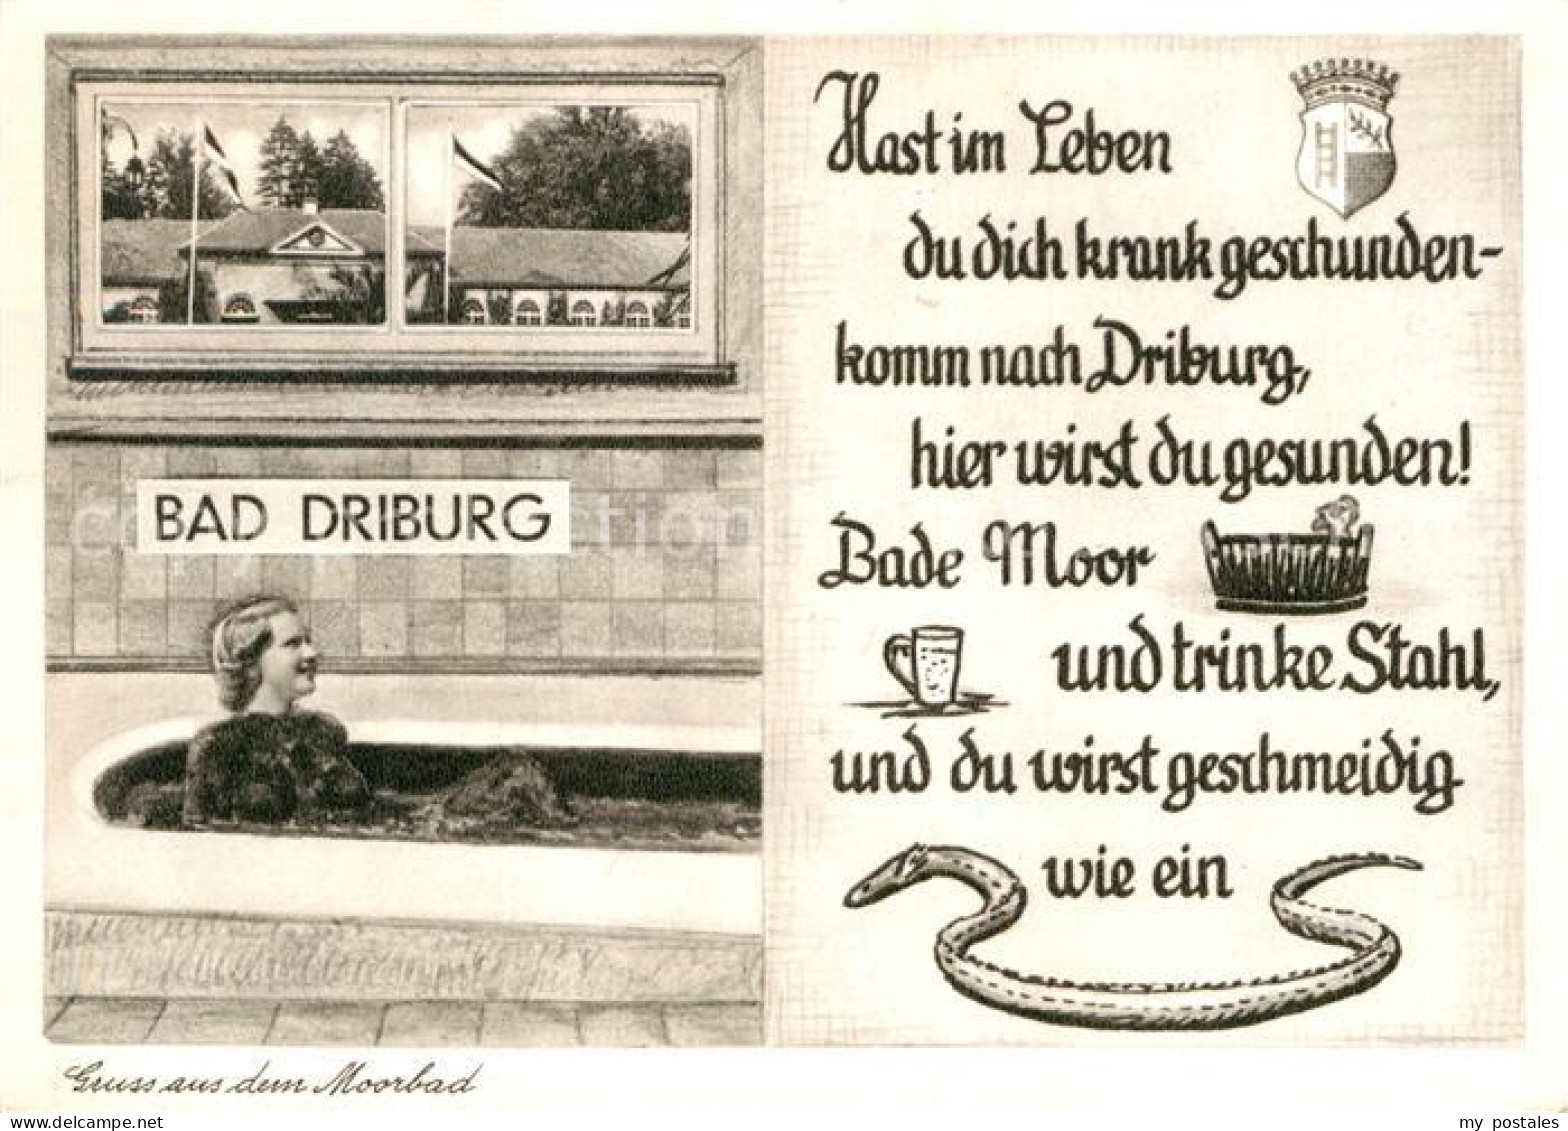 BAD DRIBURG
Hast im Leben
du dich krank geschunden-
komm nach Driburg,
hier wirst du gesunden!
Bade Moor
und trinke Stahl,
und du wirst geschmeidig
wie ein
Gruss aus dem Moorbad
my postales